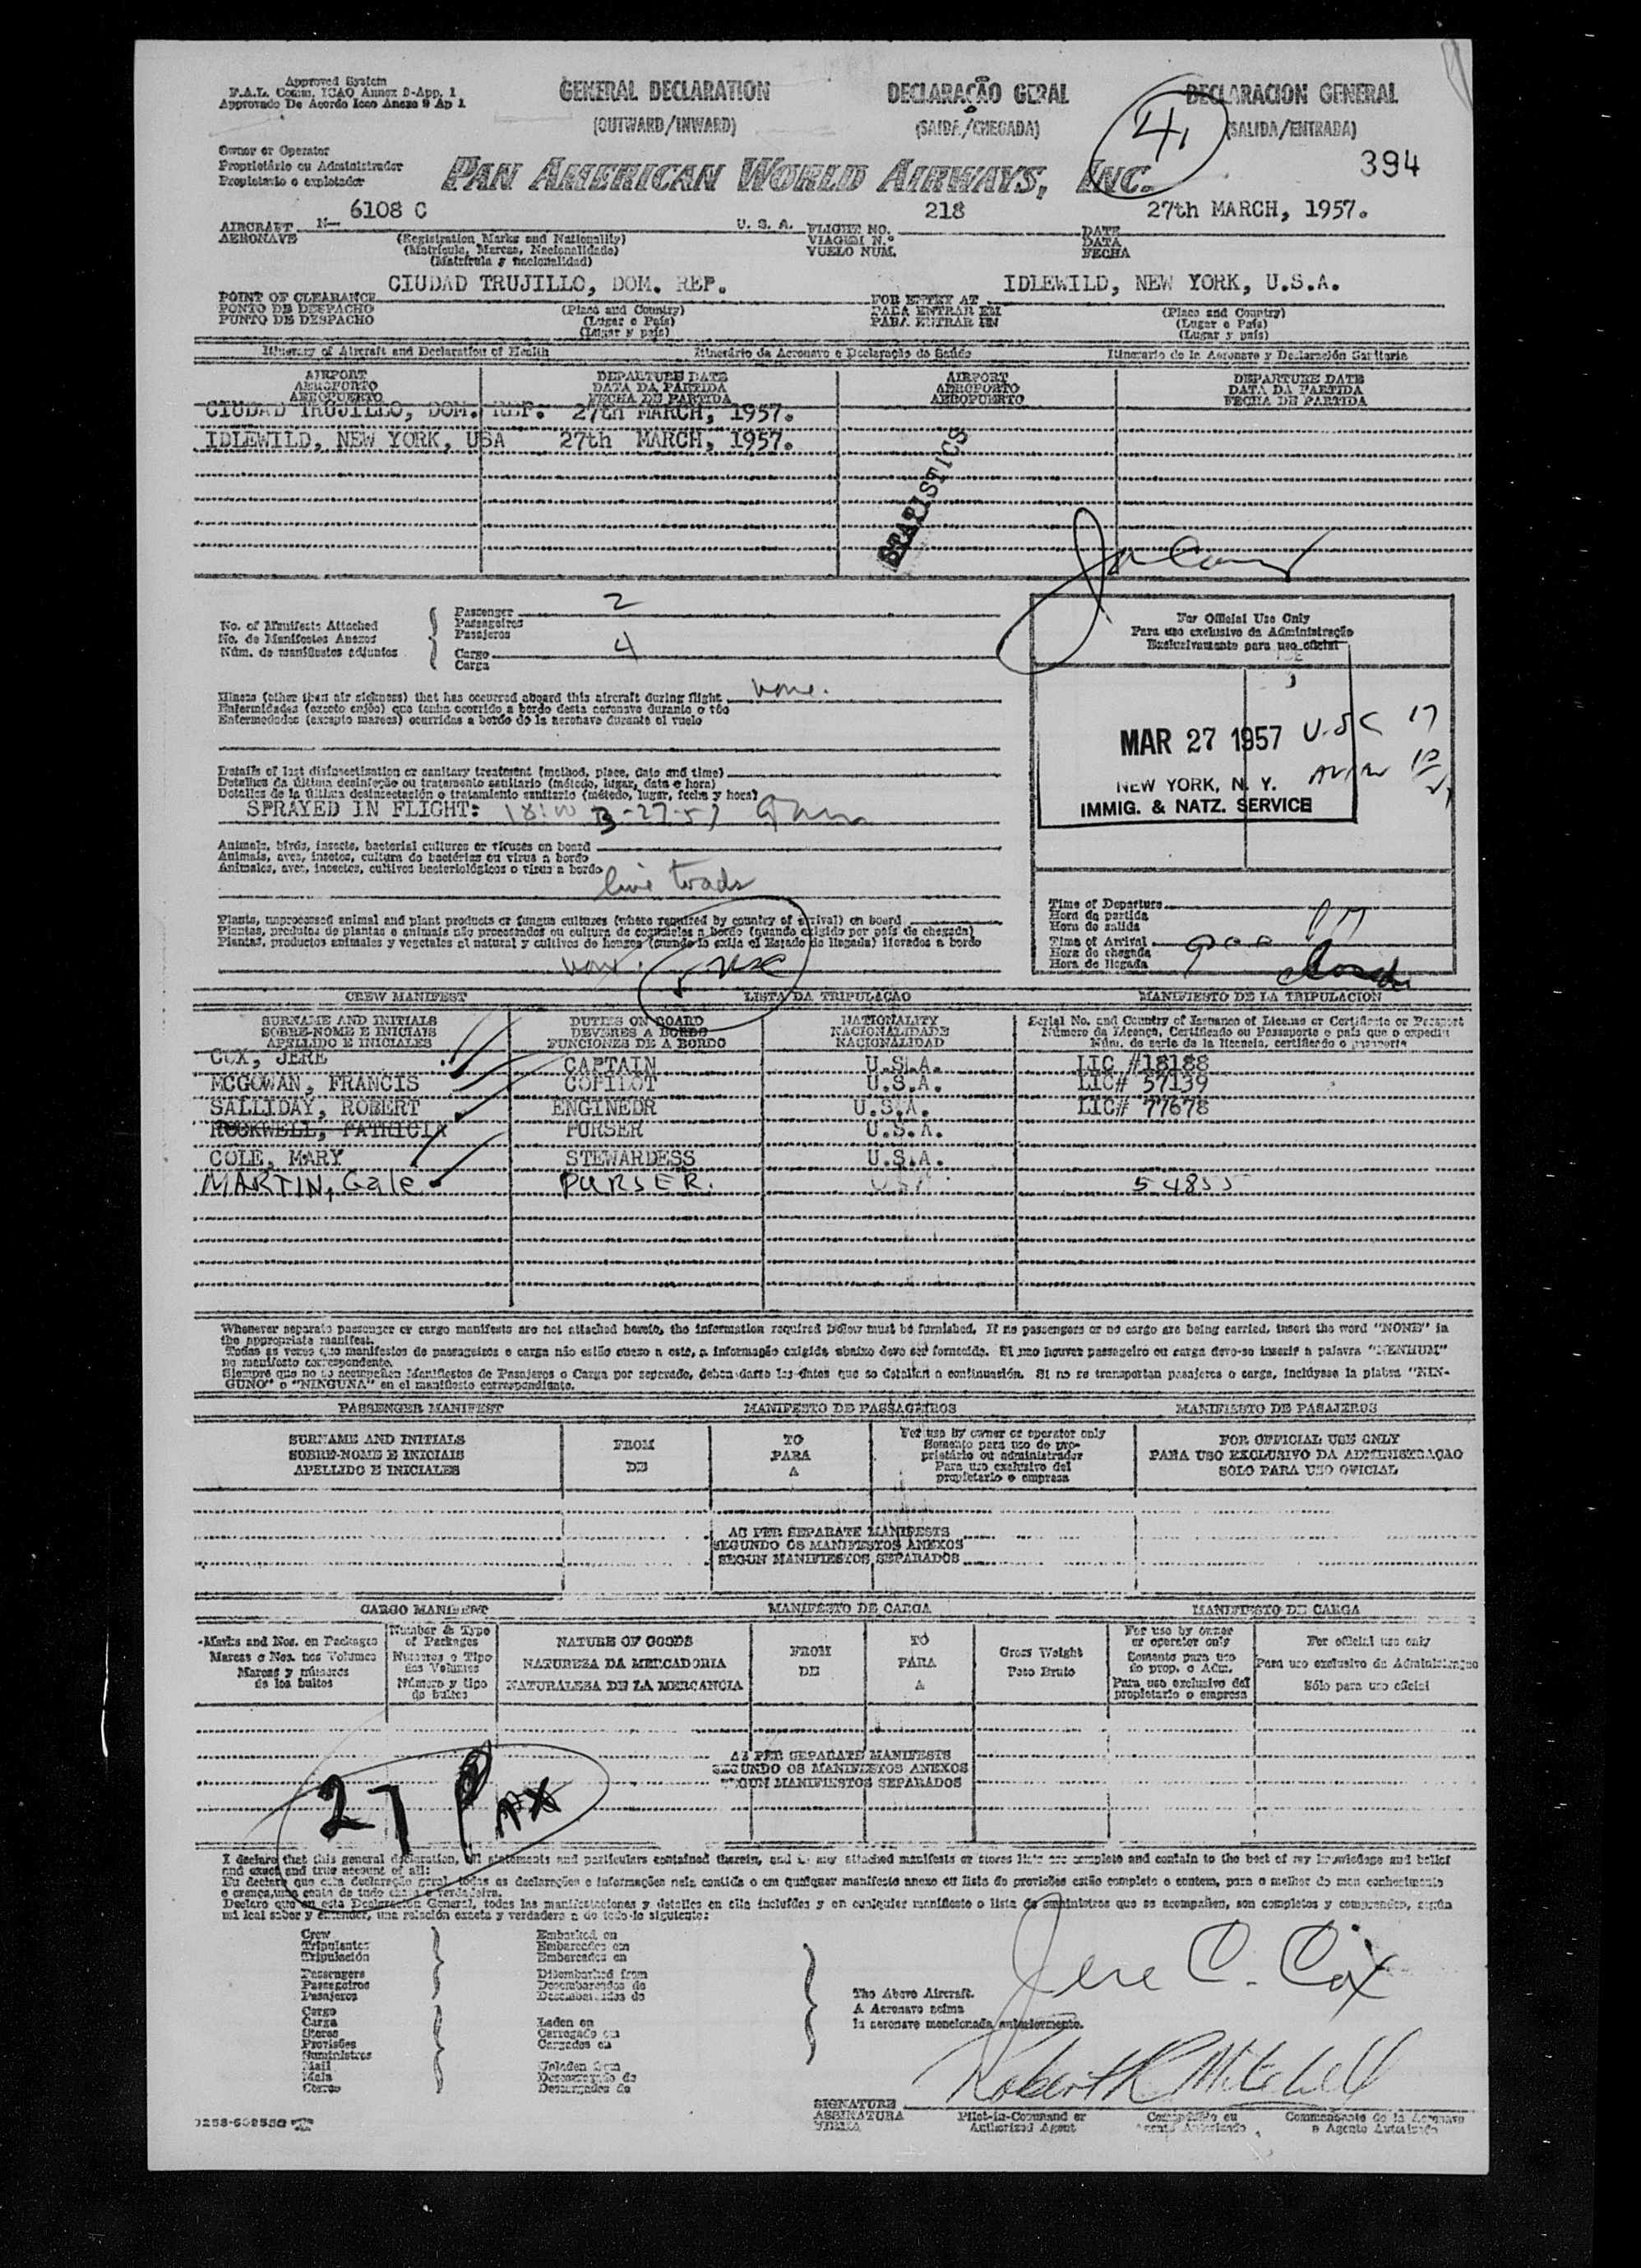 Approved System
F.A.L. Comm. ICAO Annex 9-App. 1
Approvado De Acordo Icao Anexo 9 Ap 1
GENERAL DECLARATION
(OUTWARD/INWARD)
DECLARAÇÃO GERAL
(SAIDA/CHEGADA)
DECLARACION GENERAL
(SALIDA/ENTRADA)
4,
394
Owner or Operator
Proprietário ou Administrador
Propietario o explotador
PAN AMERICAN WORLD AIRWAYS, INC.
AIRCRAFT N- 6108 C U. S. A. FLIGHT NO. 218 DATE 27th MARCH, 1957.
AERONAVE (Registration Marks and Nationality) VIAGEM N.º DATA
(Matricula, Marcas, Nacionalidade) VUELO NUM. FECHA
(Matrícula y nacionalidad)
POINT OF CLEARANCE CIUDAD TRUJILLO, DOM. REP. FOR ENTRY AT IDLEWILD, NEW YORK, U.S.A.
PONTO DE DESPACHO (Place and Country) PARA ENTRAR EM (Place and Country)
PUNTO DE DESPACHO (Lugar e País) PARA ENTRAR EN (Lugar e País)
(Lugar y país) (Lugar y país)
Itinerary of Aircraft and Declaration of Health Itinerário da Aeronave e Declaração de Saúde Itinerario de la Aeronave y Declaración Sanitaria
AIRPORT DEPARTURE DATE AIRPORT DEPARTURE DATE
AEROPORTO DATA DA PARTIDA AEROPORTO DATA DA PARTIDA
AEROPUERTO FECHA DE PARTIDA AEROPUERTO FECHA DE PARTIDA
CIUDAD TRUJILLO, DOM. REP. 27th MARCH, 1957.
IDLEWILD, NEW YORK, USA 27th MARCH, 1957.
STATISTICS
No. of Manifests Attached
No. de Manifestos Anexos
Núm. de manifiestos adjuntos
Passenger 2
Passageiros
Pasajeros
Cargo 4
Carga
For Official Use Only
Para uso exclusivo da Administração
Exclusivamente para uso oficial
Illness (other than air sickness) that has occurred aboard this aircraft during flight none.
Enfermidades (exceto enjôo) que tenha ocorrido a bordo desta aeronave durante o vôo
Enfermedades (excepto mareos) ocurridas a bordo de la aeronave durante el vuelo
MAR 27 1957
NEW YORK, N. Y.
IMMIG. & NATZ. SERVICE
U.S.C 17
Details of last disinsectization or sanitary treatment (method, place, date and time)
Detalhes da última desinfeção ou tratamento sanitario (método, lugar, data e hora)
Detalles de la última desinsectación o tratamiento sanitario (método, lugar, fecha y hora)
SPRAYED IN FLIGHT: 18:00 3-27-57
Animals, birds, insects, bacterial cultures or viruses on board
Animais, aves, insetos, cultura de bactérias ou virus a bordo
Animales, aves, insectos, cultivos bacteriológicos o virus a bordo
live toads
Plants, unprocessed animal and plant products or fungus cultures (where required by country of arrival) on board
Plantas, produtos de plantas e animais não processados ou cultura de cogumelos a bordo (quando exigido por país de chegada)
Plantas, productos animales y vegetales al natural y cultivos de hongos (cuando lo exija el Estado de llegada) llevados a bordo
Time of Departure
Hora da partida
Hora de salida
Time of Arrival 900
Hora de chegada
Hora de llegada
CREW MANIFEST LISTA DA TRIPULAÇAO MANIFIESTO DE LA TRIPULACION
SURNAME AND INITIALS DUTIES ON BOARD NATIONALITY Serial No. and Country of Issuance of License or Certificate or Passport
SOBRE-NOME E INICIAIS DEVERES A BORDO NACIONALIDADE Número da Licença, Certificado ou Passaporte e país que o expediu
APELLIDO E INICIALES FUNCIONES DE A BORDO NACIONALIDAD Núm. de serie de la licencia, certificado o pasaporte
COX, JERE CAPTAIN U.S.A. LIC #18188
MCGOWAN, FRANCIS COPILOT U.S.A. LIC# 57139
SALLIDAY, ROBERT ENGINEDR U.S.A. LIC# 77678
ROCKWELL, PATRICIA PURSER U.S.A.
COLE, MARY STEWARDESS U.S.A.
MARTIN, Gale PURSER. USA 54855
Whenever separate passenger or cargo manifests are not attached hereto, the information required below must be furnished. If no passengers or no cargo are being carried, insert the word "NONE" in
the appropriate manifest.
Todas as vezes que manifestos de passageiros e carga não estão anexo a este, a informação exigida abaixo deve ser fornecida. Si nao houver passageiro ou carga deve-se inserir a palavra "NENHUM"
no manifesto correspondente.
Siempre que no se acompañen Manifiestos de Pasajeros o Carga por separado, deben darse los datos que se detallan a continuación. Si no se transportan pasajeros o carga, inclúyase la plabra "NIN-
GUNO" o "NINGUNA" en el manifiesto correspondiente.
PASSENGER MANIFEST MANIFESTO DE PASSAGEIROS MANIFIESTO DE PASAJEROS
SURNAME AND INITIALS FROM TO For use by owner or operator only FOR OFFICIAL USE ONLY
SOBRE-NOME E INICIAIS DE PARA Somente para uso do pro- PARA USO EXCLUSIVO DA ADMINISTRAÇAO
APELLIDO E INICIALES A prietário ou administrador SOLO PARA USO OFICIAL
Para uso exclusivo del
propietario o empresa
AS PER SEPARATE MANIFESTS
SEGUNDO OS MANIFESTOS ANEXOS
SEGUN MANIFIESTOS SEPARADOS
CARGO MANIFEST MANIFESTO DE CARGA MANIFIESTO DE CARGA
Marks and Nos. on Packages Number & Type of Packages NATURE OF GOODS FROM TO Gross Weight For use by owner or operator only For official use only
Marcas e Nos. nos Volumes Numeros e Tipo dos Volumes NATUREZA DA MERCADORIA DE PARA Peso Bruto Somente para uso do prop. o Adm. Para uso exclusivo da Administraçao
Marcas y números de los bultos Número y tipo de bultos NATURALEZA DE LA MERCANCIA A Para uso exclusivo del propietario o empresa Sólo para uso oficial
AS PER SEPARATE MANIFESTS
SEGUNDO OS MANIFESTOS ANEXOS
SEGUN MANIFIESTOS SEPARADOS
27 Pax
I declare that this general declaration, all statements and particulars contained therein, and in any attached manifests or stores lists are complete and contain to the best of my knowledge and belief
and exact and true account of all:
Eu declaro que esta declaração geral, todas as declarações e informações nela contida o em qualquer manifesto anexo ou lista de provisões estão completo e contem, para o melhor do meu conhecimento
e crença, uma conta de tudo exata e verdadeira.
Declaro que en esta Declaración General, todas las manifestaciones y detalles en ella incluídos y en cualquier manifiesto o lista de suministros que se acompañen, son completos y comprenden, según
mi leal saber y entender, una relación exacta y verdadera a de todo lo siguiente:
Crew Embarked on
Tripulantes Embarcados em
Tripulación Embarcados en
Passengers Disembarked from
Passageiros Desembarcados de
Pasajeros Desembarcados de
Cargo
Carga Laden on
Stores Carregado em
Provisões Cargados en
Suministros
Mail Unladen from
Mala Descarregado de
Correo Descargados de
The Above Aircraft.
A Aeronave acima
la aeronave mencionada anteriormente.
Jere C. Cox
Robert R Mitchell
SIGNATURE
ASSINATURA
FIRMA
Pilot-in-Command or
Authorized Agent
Comandante da la Aeronave
o Agente Autorizado